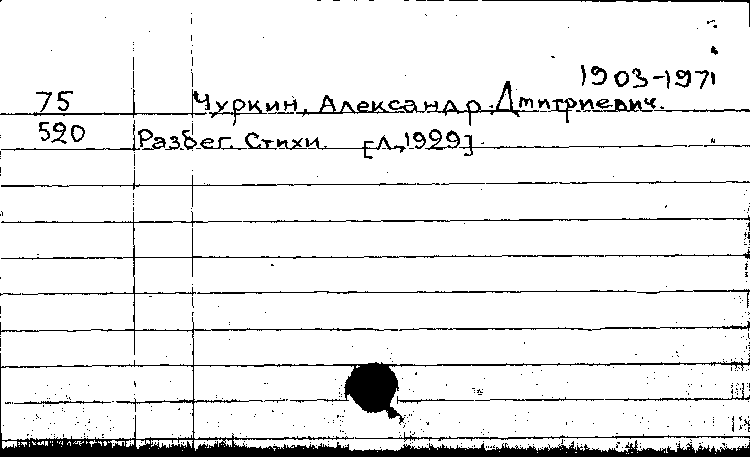 1903-1971
75 Чуркин, Александр Дмитриевич.
520 Разбег. Стихи. [Л., 1929]